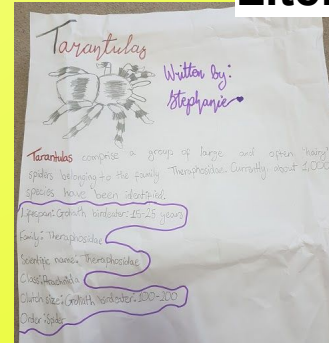 Tarantulas
Written By:
Stephanie
Tarantulas comprise a group of large and often "hairy"
spiders belonging to the family Theraphosidae. Currently, about 1,000
species have been identified.
Lifespan: Goliath birdeater: 15-25 years
Family: Theraphosidae
Scientific name: Theraphosidae
Class: Arachnida
Clutch size: Goliath birdeater: 100-200
Order: Spider